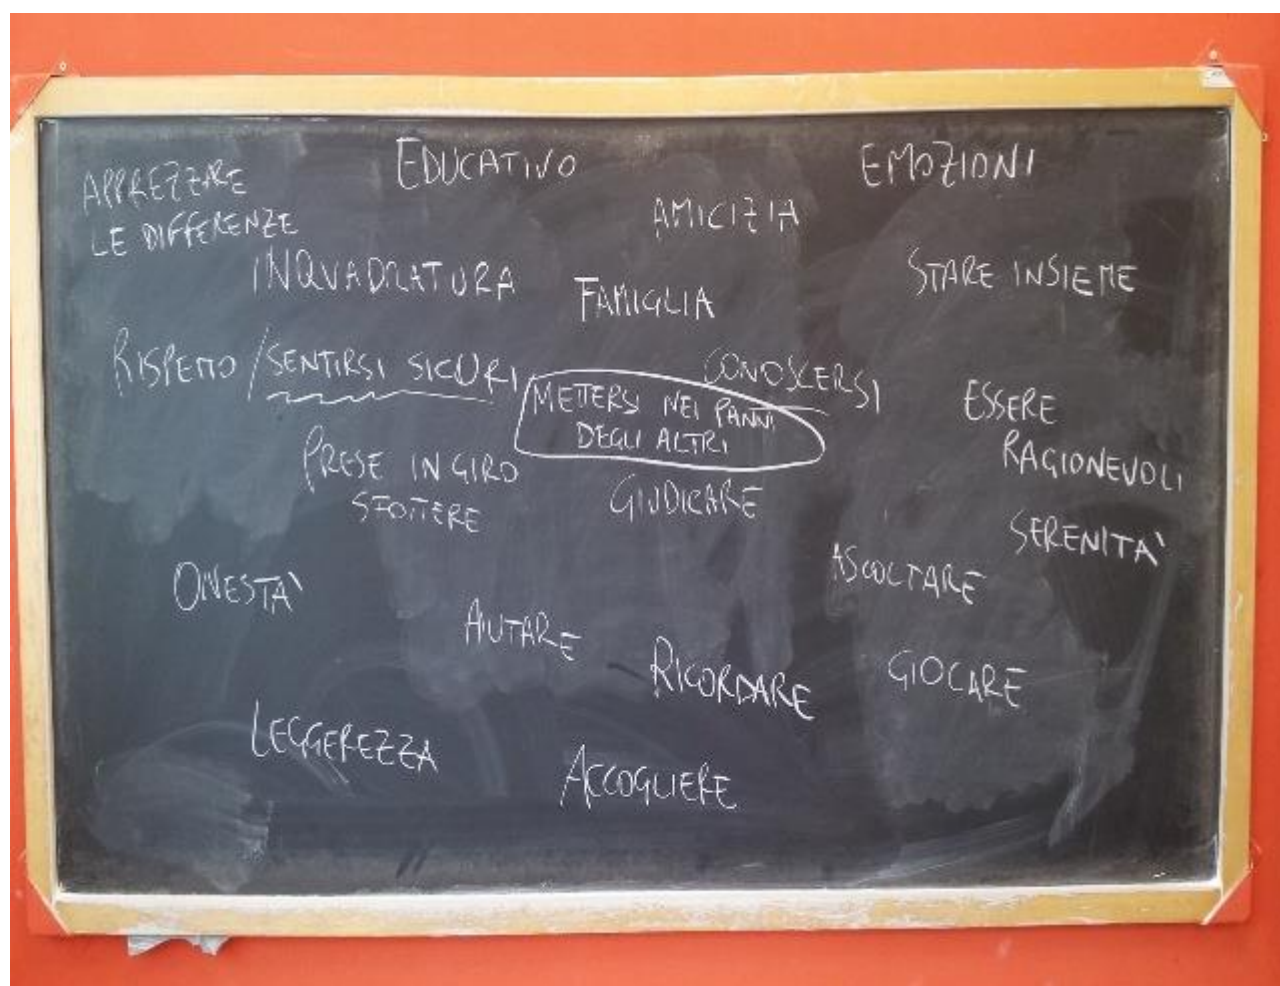 EDUCATIVO
EMOZIONI
APPREZZARE
LE DIFFERENZE
AMICIZIA
INQUADRATURA
FAMIGLIA
STARE INSIEME
RISPETTO / SENTIRSI SICURI
CONOSCERSI
METTERSI NEI PANNI
DEGLI ALTRI
ESSERE
RAGIONEVOLI
PRESE IN GIRO
SFOTTERE
GIUDICARE
SERENITA'
ASCOLTARE
ONESTA'
AIUTARE
RICORDARE
GIOCARE
LEGGEREZZA
ACCOGLIERE